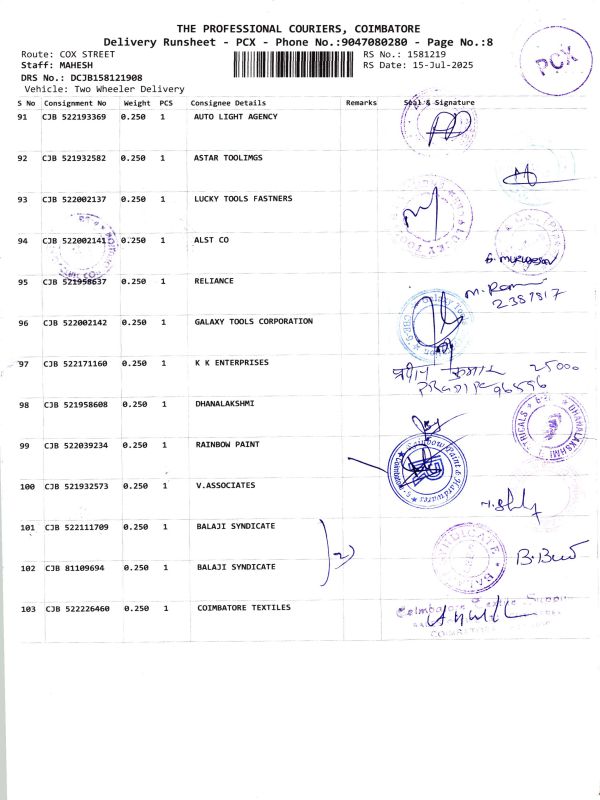 THE PROFESSIONAL COURIERS, COIMBATORE
Delivery Runsheet - PCX - Phone No.:9047080280 - Page No.:8
Route: COX STREET
RS No.: 1581219
Staff: MAHESH
RS Date: 15-Jul-2025
DRS No.: DCJB158121908
Vehicle: Two Wheeler Delivery
PCX
S No Consignment No Weight PCS Consignee Details Remarks Seal & Signature
91 CJB 522193369 0.250 1 AUTO LIGHT AGENCY
92 CJB 521932582 0.250 1 ASTAR TOOLIMGS
93 CJB 522002137 0.250 1 LUCKY TOOLS FASTNERS
94 CJB 522002141 0.250 1 ALST CO
G. MURUGESAN
95 CJB 521958637 0.250 1 RELIANCE
M. Ram
2387817
96 CJB 522002142 0.250 1 GALAXY TOOLS CORPORATION
97 CJB 522171160 0.250 1 K K ENTERPRISES
25000
PRADIP 96556
98 CJB 521958608 0.250 1 DHANALAKSHMI
99 CJB 522039234 0.250 1 RAINBOW PAINT
100 CJB 521932573 0.250 1 V.ASSOCIATES
101 CJB 522111709 0.250 1 BALAJI SYNDICATE
2)
102 CJB 81109694 0.250 1 BALAJI SYNDICATE
103 CJB 522226460 0.250 1 COIMBATORE TEXTILES